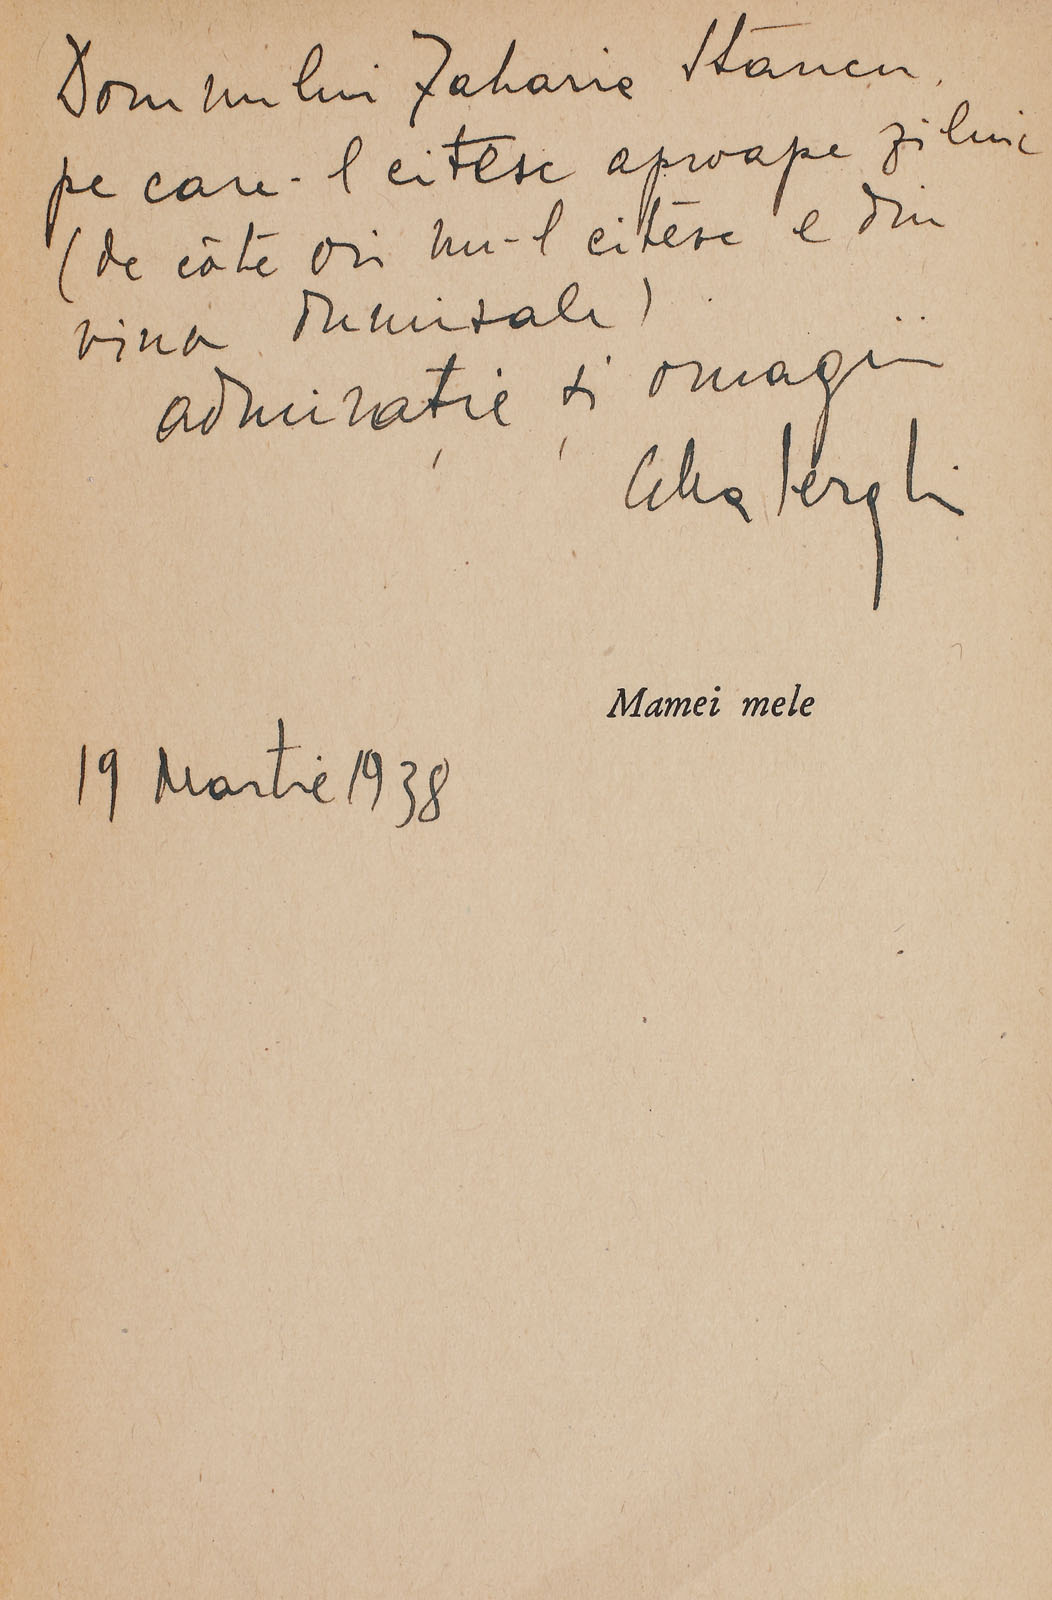 Domnului Zaharia Stancu,
pe care-l citesc aproape zilnic
(de câte ori nu-l citesc e din
vina dumisale)
admirație și omagii
Cella Serghi
Mamei mele
19 Martie 1938